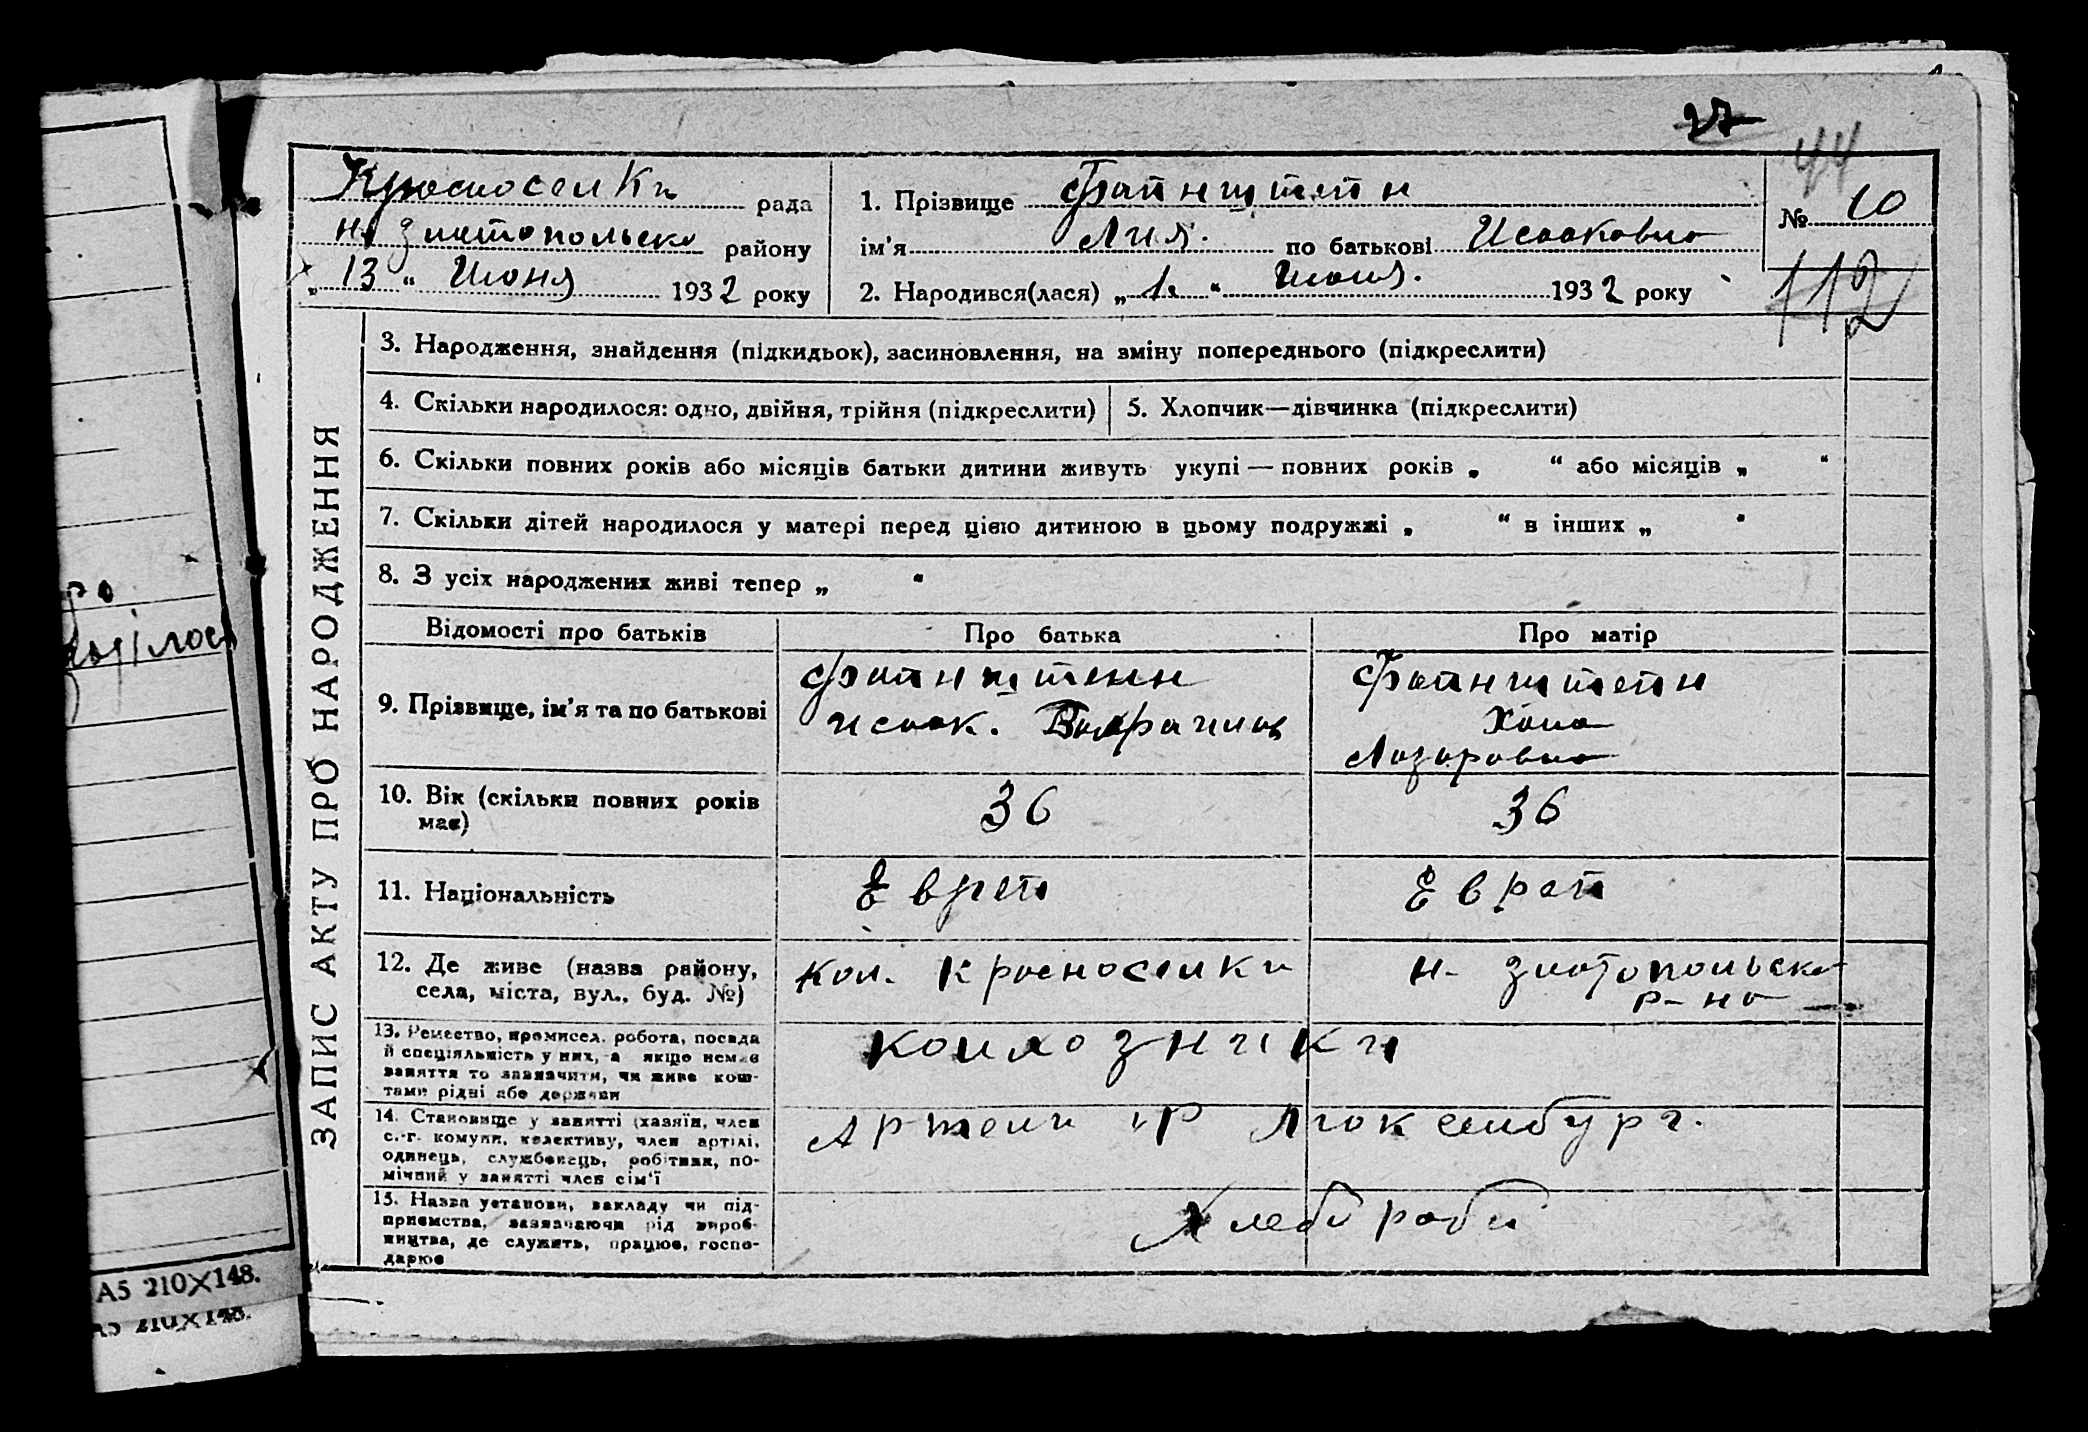 27
44
Красноселки рада
Н. Златопольско району
„ 13 “ Июня 1932 року
1. Прізвище Файнштейн
ім’я Лия. по батькові Исааковна
2. Народився(лася) „ 1. “ Июня. 1932 року
№ 10
112
ЗАПИС АКТУ ПРО НАРОДЖЕННЯ
3. Народження, знайдення (підкидьок), засиновлення, на зміну попереднього (підкреслити)
4. Скільки народилося: одно, двійня, трійня (підкреслити)
5. Хлопчик—дівчинка (підкреслити)
6. Скільки повних років або місяців батьки дитини живуть укупі — повних років „ “ або місяців „ “
7. Скільки дітей народилося у матері перед цією дитиною в цьому подружжі „ “ в інших „ “
8. З усіх народжених живі тепер „ “
Відомості про батьків
Про батька
Про матір
9. Прізвище, ім’я та по батькові
Файнштейн
Исаак.
Файнштейн
Хана
Лазаровна
10. Вік (скільки повних років
має)
36
36
11. Національність
Еврей
Еврей
12. Де живе (назва району,
села, міста, вул., буд. №)
Кол. Красноселки
Н- Златопольско
р-на
13. Ремество, промисел, робота, посада
й спеціяльність у них, а якщо немає
заняття то зазначити, чи живе кош-
тами рідні або держави
Колхозники
14. Становище у занятті (хазяїн, член
с.-г. комуни, колективу, член артілі,
одинець, службовець, робітник, по-
мічний у занятті член сім’ї
Артели Люксембург.
15. Назва установи, закладу чи під-
приємства, зазначаючи рід вироб-
ництва, де служить, працює, госпо-
дарює
Хлебороби
А5 210×148.
А5 210×148.